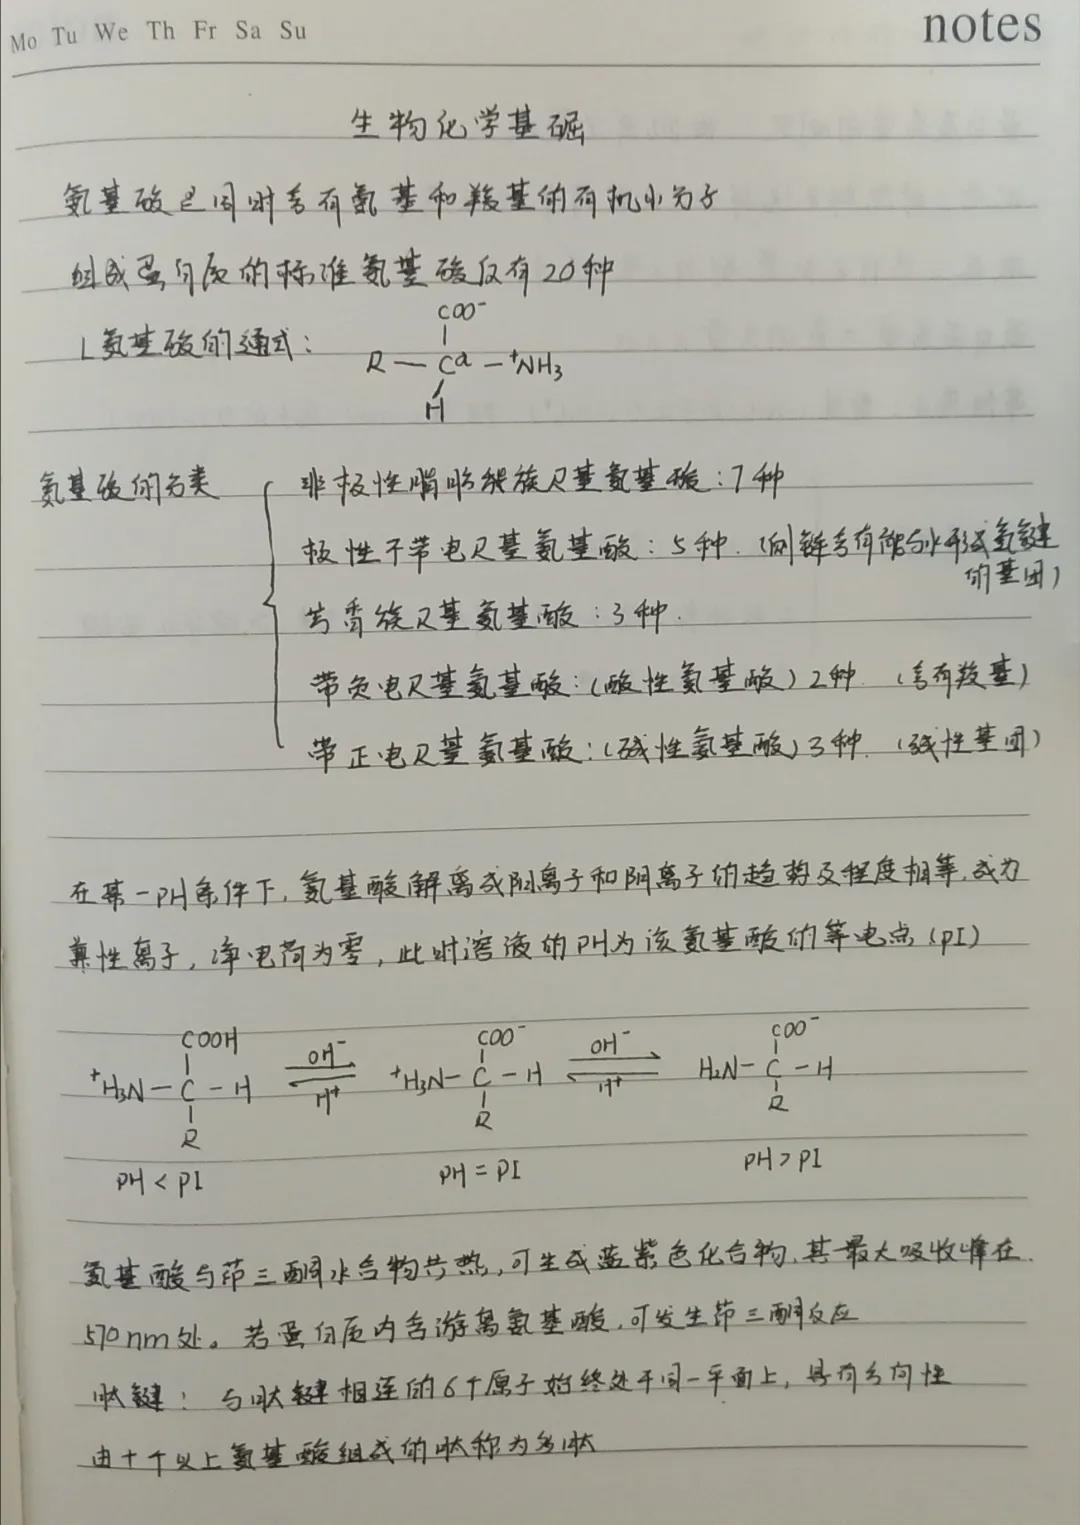 Mo Tu We Th Fr Sa Su
notes
生物化学基础
氨基酸是同时含有氨基和羧基的有机小分子
组成蛋白质的标准氨基酸仅有20种
L氨基酸的通式：
COO⁻
R — Cα — ⁺NH₃
H
氨基酸的分类
非极性脂肪族R基氨基酸：7种
极性不带电R基氨基酸：5种.（侧链含有能与水形成氢键
的基团）
芳香族R基氨基酸：3种.
带负电R基氨基酸：（酸性氨基酸）2种.（含有羧基）
带正电R基氨基酸：（碱性氨基酸）3种.（碱性基团）
在某一PH条件下，氨基酸解离成阳离子和阴离子的趋势及程度相等，成为
兼性离子，净电荷为零，此时溶液的PH为该氨基酸的等电点（pI）
COOH COO⁻ COO⁻
⁺H₃N — C — H OH⁻ H⁺ ⁺H₃N — C — H OH⁻ H⁺ H₂N — C — H
R R R
PH < PI PH = PI PH > PI
氨基酸与茚三酮水合物共热，可生成蓝紫色化合物，其最大吸收峰在
570nm处。若蛋白质内含游离氨基酸，可发生茚三酮反应
肽键：与肽键相连的6个原子始终处于同一平面上，具有方向性
由十个以上氨基酸组成的肽称为多肽